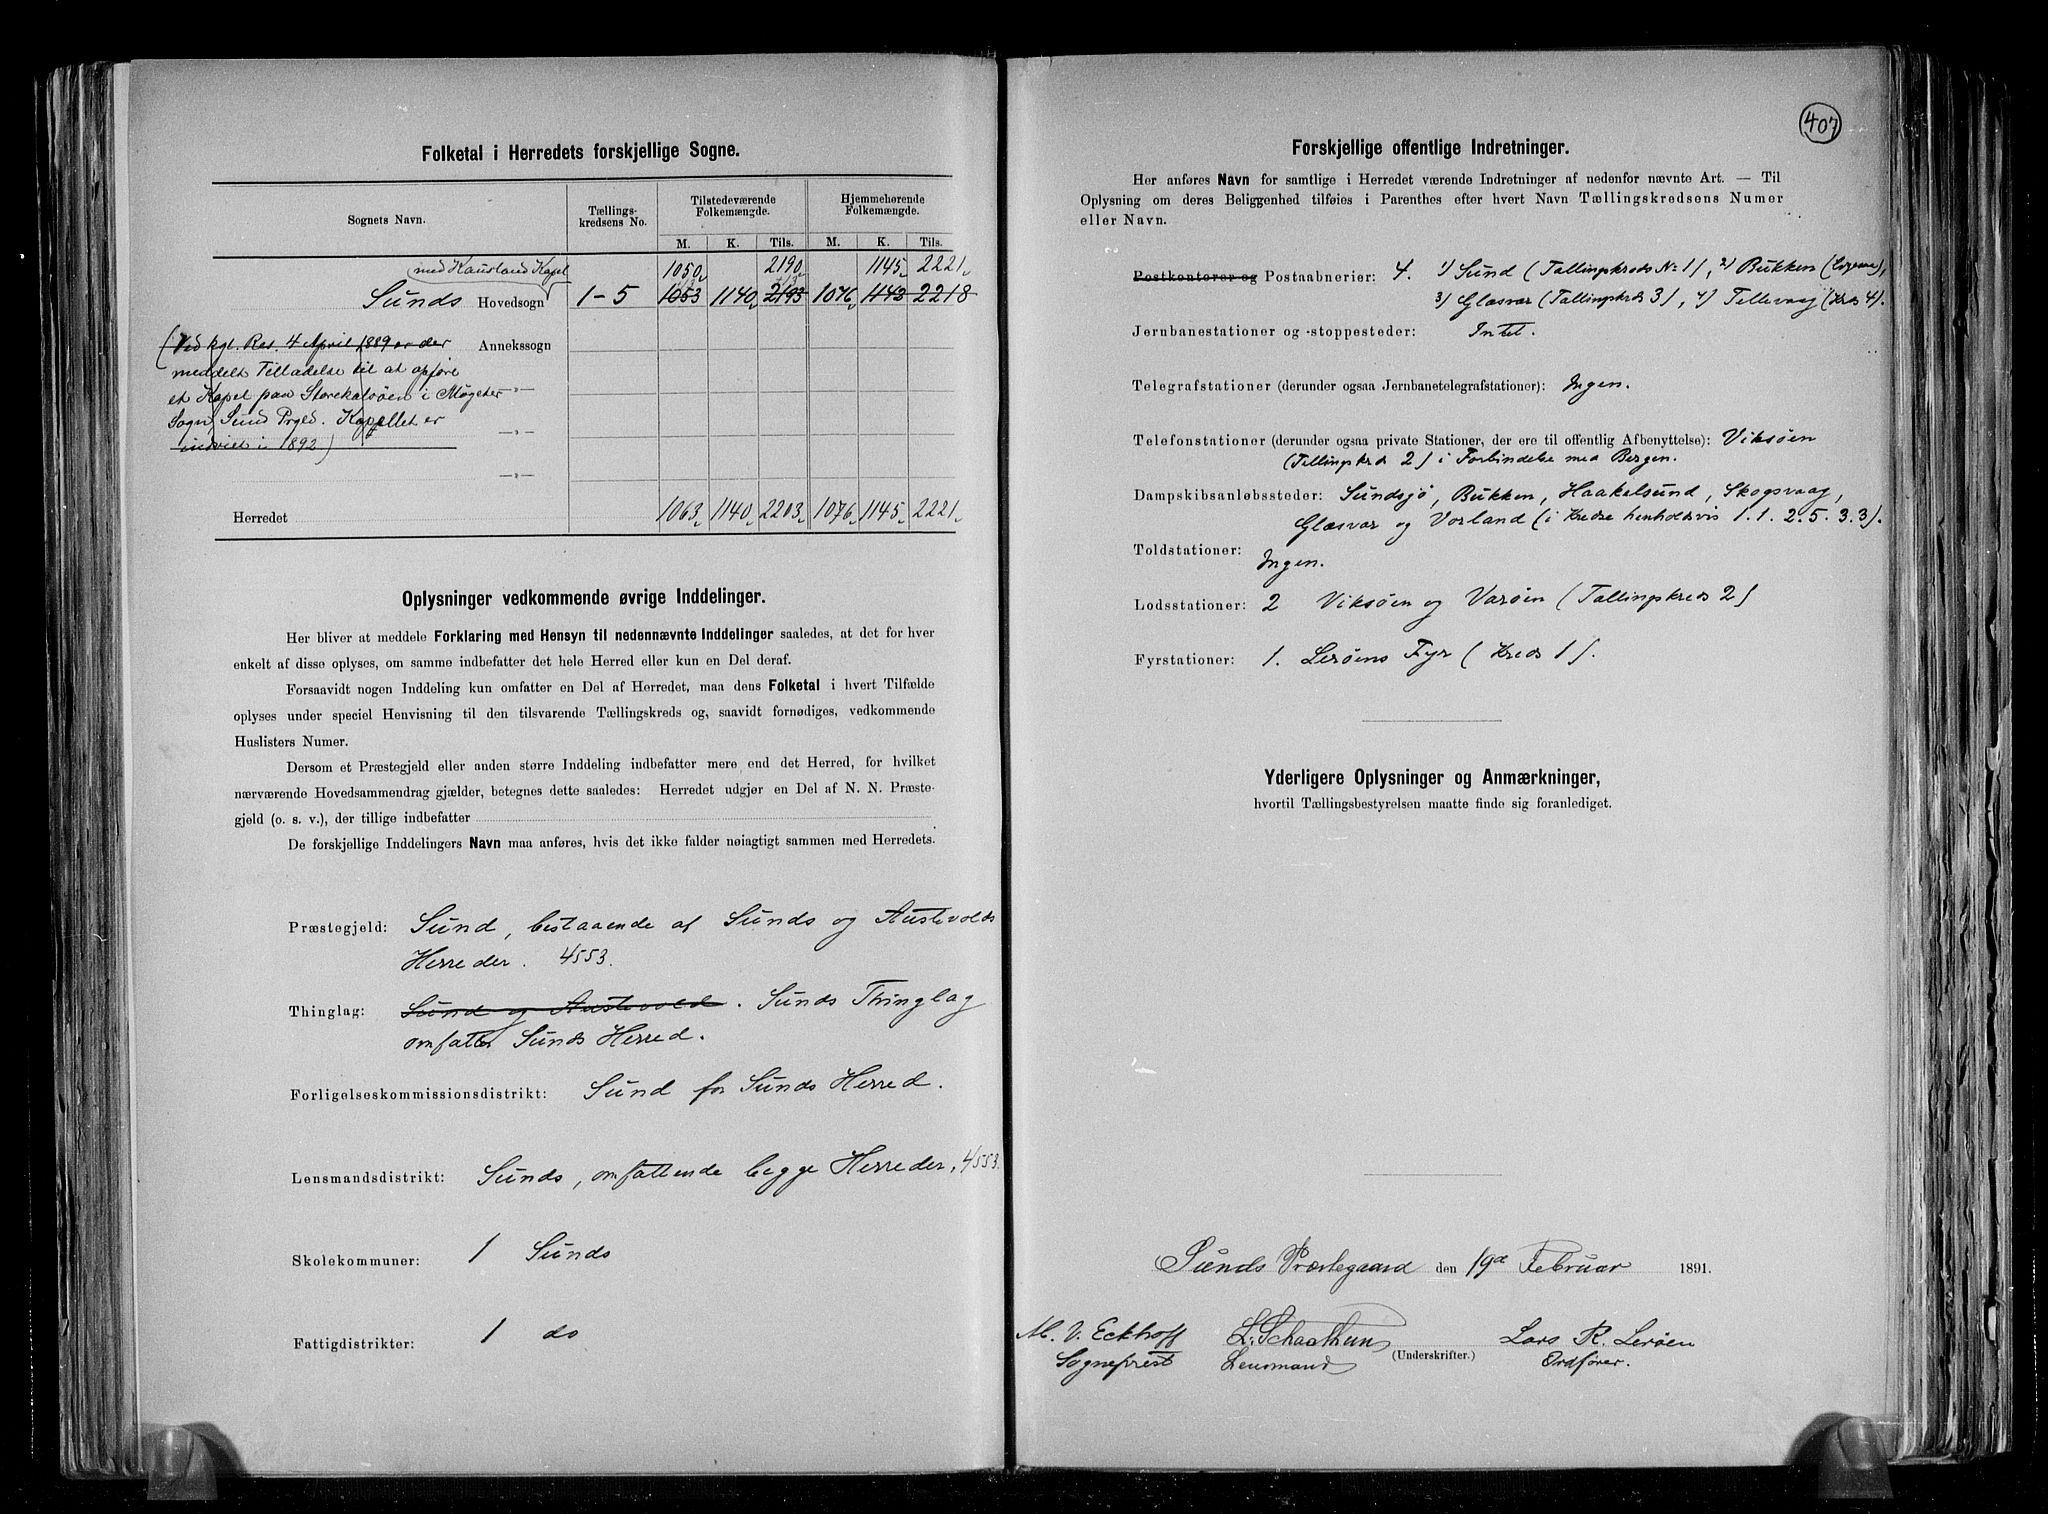 Folketal i Herredets forskjellige Sogne.
Sognets Navn.
Tællings-
kredsens No.
Tilstedeværende
Folkemængde.
Hjemmehørende
Folkemængde.
M. K. Tils. M. K. Tils.
med Kausland Kapel 1050 2190 1145 2221
Sunds Hovedsogn 1-5 1053 1140 2193 1076 1142 2218
(Ved kgl. Res. 4 April 1889 er der Annekssogn
meddelt Tilladelse til at opføre
et Kapel paa Storekalsøen i Møgster -„-
Sogn, Sund Prgld. Kapellet er
indviet i 1892) -„-
-„-
Herredet 1063 1140 2203 1076 1145 2221
Oplysninger vedkommende øvrige Inddelinger.
Her bliver at meddele Forklaring med Hensyn til nedennævnte Inddelinger saaledes, at det for hver
enkelt af disse oplyses, om samme indbefatter det hele Herred eller kun en Del deraf.
Forsaavidt nogen Inddeling kun omfatter en Del af Herredet, maa dens Folketal i hvert Tilfælde
oplyses under speciel Henvisning til den tilsvarende Tællingskreds og, saavidt fornødiges, vedkommende
Huslisters Numer.
Dersom et Præstegjeld eller anden større Inddeling indbefatter mere end det Herred, for hvilket
nærværende Hovedsammendrag gjælder, betegnes dette saaledes: Herredet udgjør en Del af N. N. Præste-
gjeld (o. s. v.), der tillige indbefatter
De forskjellige Inddelingers Navn maa anføres, hvis det ikke falder nøiagtigt sammen med Herredets.
Præstegjeld: Sund, bestaaende af Sunds og Austevolds
Herreder. 4553.
Thinglag: Sund og Austevold. Sunds Thinglag
omfatter Sunds Herred.
Forligelseskommissionsdistrikt: Sund for Sunds Herred.
Lensmandsdistrikt: Sunds, omfattende begge Herreder, 4553.
Skolekommuner: 1 Sunds
Fattigdistrikter: 1 do
407
Forskjellige offentlige Indretninger.
Her anføres Navn for samtlige i Herredet værende Indretninger af nedenfor nævnte Art. — Til
Oplysning om deres Beliggenhed tilføies i Parenthes efter hvert Navn Tællingskredsens Numer
eller Navn.
Postkontorer og Postaabnerier: 4. 1) Sund (Tallingkreds No 1), 2) Bukken
3) Glæsvær (Tallingkrds 3), 4) Tellevaag (Krds 4).
Jernbanestationer og -stoppesteder: Intet.
Telegrafstationer (derunder ogsaa Jernbanetelegrafstationer): Ingen.
Telefonstationer (derunder ogsaa private Stationer, der ere til offentlig Afbenyttelse): Viksøen
(Tellingskrds 2) i Forbindelse med Bergen.
Dampskibsanløbssteder: Sundsjö, Bukken, Haakelsund, Skogsvaag,
Glæsvær og Vorland (i Kredse henholdsvis 1. 1. 2. 5. 3. 3).
Toldstationer: Ingen.
Lodsstationer: 2 Viksøen og Varøen (Tallingskreds 2)
Fyrstationer: 1. Lerøens Fyr (Kreds 1).
Yderligere Oplysninger og Anmærkninger,
hvortil Tællingsbestyrelsen maatte finde sig foranlediget.
Sunds Præstegaard den 19de Februar 1891.
M. V. Eckhoff L. Schaathun Lars R. Lerøen
(Underskrifter.)
Sogneprest Lensmand Ordfører.